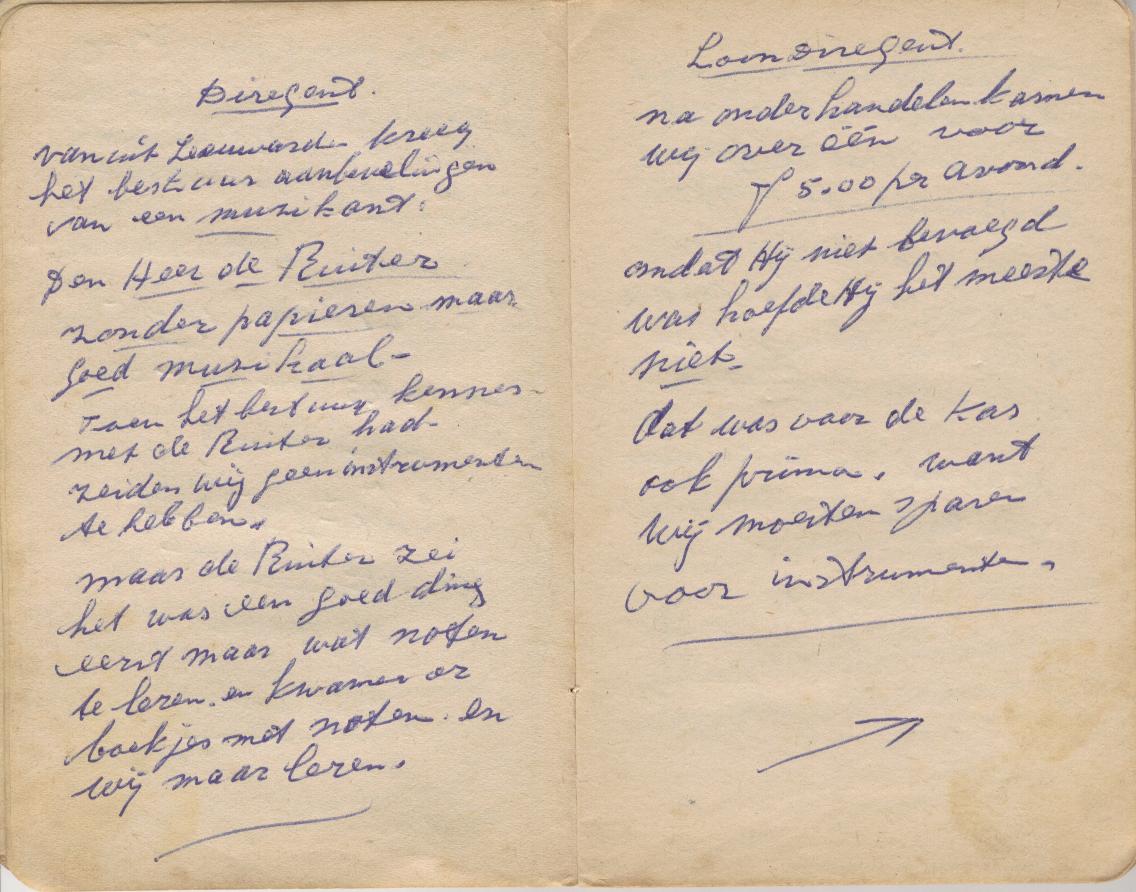 Diregent.
vanuit Leeuward. kreeg
het bestuur aanbevelingen
van een muzikant.
Den Heer de Ruiter
zonder papieren maar
goed muzikaal-
Toen het bestuur kennes-
met de Ruiter had-
zeiden wij geen instrumenten
te hebben.
maar de Ruiter zei
het was een goed ding
eerst maar wat noten
te leren. en kwamen er
boekjes met noten. en
wij maar leren.
Loon Diregent.
na onderhandelen kwamen
wij over één voor
f 5.00 per avond.
omdat Hij niet bevoegd
was hoefde Hij het meeste
niet.
Dat was voor de kas
ook prima. want
wij moesten sparen
voor instrumenten.